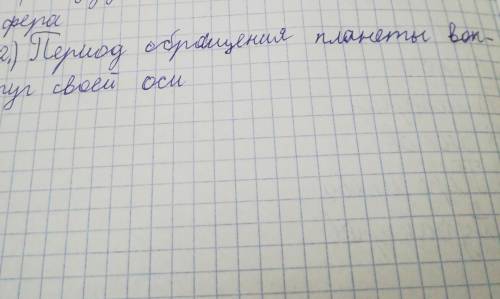 фера
2.) Период обращения планеты вок-
руг своей оси